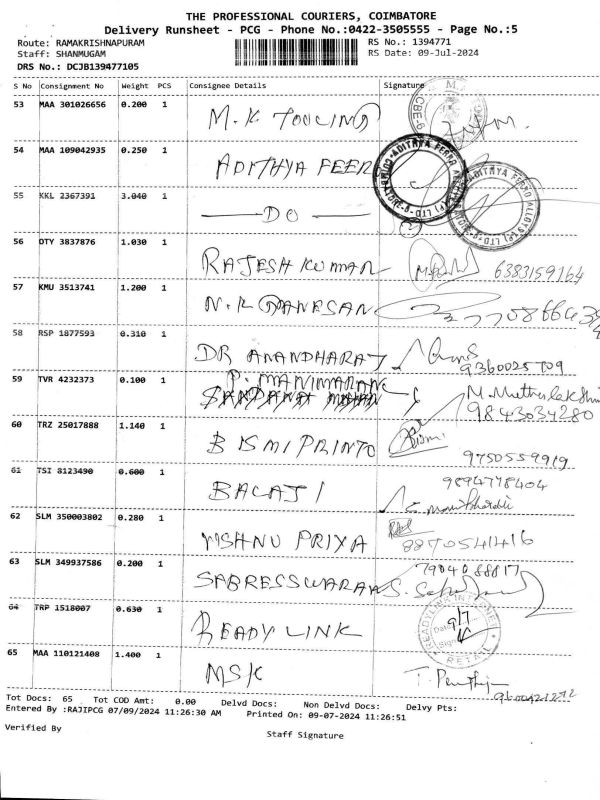 THE PROFESSIONAL COURIERS, COIMBATORE
Delivery Runsheet - PCG - Phone No.:0422-3505555 - Page No.:5
Route: RAMAKRISHNAPURAM
RS No.: 1394771
Staff: SHANMUGAM
RS Date: 09-Jul-2024
DRS No.: DCJB139477105
S No Consignment No Weight PCS Consignee Details Signature
53 MAA 301026656 0.200 1 M.K TOOLING
54 MAA 109042935 0.250 1 ADITHYA FEER
55 KKL 2367391 3.040 1 DO
56 OTY 3837876 1.030 1 RAJESH KUMAR 6383159164
57 KMU 3513741 1.200 1 N.K GANESAN
58 RSP 1877593 0.310 1 DR ANANDHARAJ 9360025709
59 TVR 4232373 0.100 1 P. MANIMARAN M. Muthulakshmi
9843034280
60 TRZ 25017888 1.140 1 BISMI PRINTO Bismi
9750559919
61 TSI 8123490 0.600 1 BALAJI 9894778404
62 SLM 350003802 0.280 1 VISHNU PRIYA 8870541416
63 SLM 349937586 0.200 1 SABRESSWARAN 7904088817
64 TRP 1518007 0.630 1 READY LINK 9/7
65 MAA 110121408 1.400 1 MSK
Tot Docs: 65 Tot COD Amt: 0.00 Delvd Docs: Non Delvd Docs: Delvy Pts:
Entered By :RAJIPCG 07/09/2024 11:26:30 AM Printed On: 09-07-2024 11:26:51
Verified By
Staff Signature